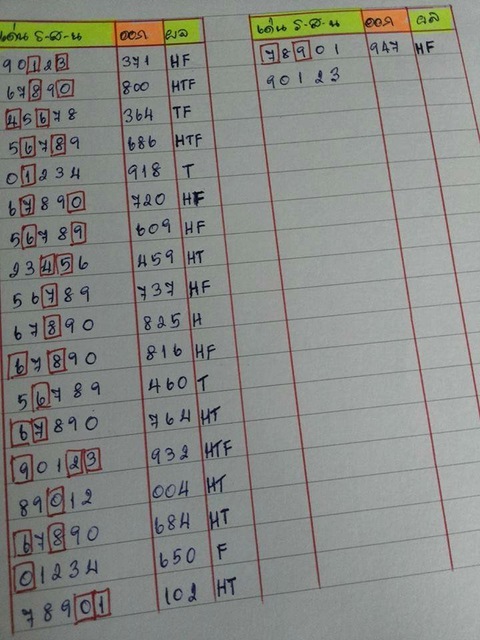 เด่น ร-ส-น ออก ผล
90123 371 HF
67890 800 HTF
45678 364 TF
56789 686 HTF
01234 918 T
67890 720 HF
56789 609 HF
23456 459 HT
56789 737 HF
67890 825 H
67890 816 HF
56789 460 T
67890 764 HT
90123 932 HTF
89012 004 HT
67890 684 HT
01234 650 F
78901 102 HT
เด่น ร-ส-น ออก ผล
78901 947 HF
90123